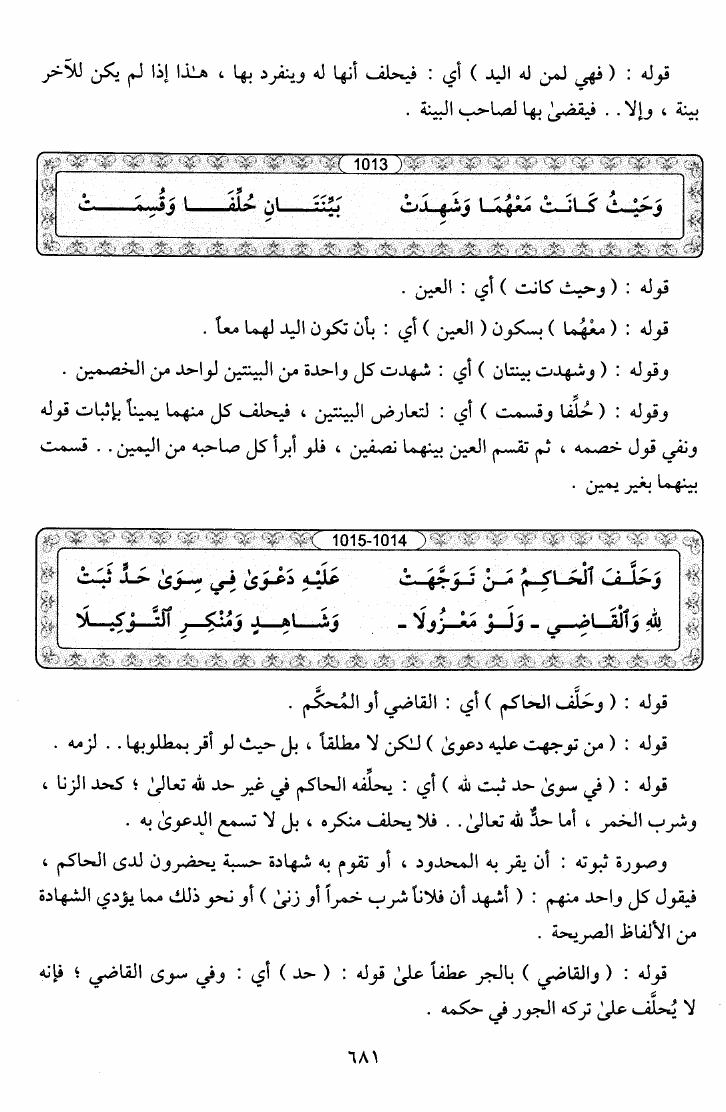 قوله : ( فهي لمن له اليد ) أي : فيحلف أنها له وينفرد بها ، هـٰذا إذا لم يكن للآخر
بينة ، وإلا . . فيقضىٰ بها لصاحب البينة .
1013
وَحَيْثُ كَانَتْ مَعْهُمَا وَشَهِدَتْ بَيِّنَتَانِ حُلِّفَا وَقُسِمَتْ
قوله : ( وحيث كانت ) أي : العين .
قوله : ( معْهُما ) بسكون ( العين ) أي : بأن تكون اليد لهما معاً .
وقوله : ( وشهدت بينتان ) أي : شهدت كل واحدة من البينتين لواحد من الخصمين .
وقوله : ( حُلِّفا وقسمت ) أي : لتعارض البينتين ، فيحلف كل منهما يميناً بإثبات قوله
ونفي قول خصمه ، ثم تقسم العين بينهما نصفين ، فلو أبرأ كل صاحبه من اليمين . . قسمت
بينهما بغير يمين .
1014-1015
وَحَلَّفَ ٱلْحَاكِمُ مَنْ تَوَجَّهَتْ عَلَيْهِ دَعْوَىٰ فِي سِوَىٰ حَدٍّ ثَبَتْ
لِلهِ وَٱلْقَاضِي ـ وَلَوْ مَعْزُولَا ـ وَشَاهِدٍ وَمُنْكِرِ ٱلتَّوْكِيلَا
قوله : ( وحَلَّف الحاكم ) أي : القاضي أو المُحكَّم .
قوله : ( من توجهت عليه دعوىٰ ) لـٰكن لا مطلقاً ، بل حيث لو أقر بمطلوبها . . لزمه .
قوله : ( في سوىٰ حد ثبت لله ) أي : يحلِّفه الحاكم في غير حد لله تعالىٰ ؛ كحد الزنا ،
وشرب الخمر ، أما حدٌّ لله تعالىٰ . . فلا يحلف منكره ، بل لا تسمع الدعوىٰ به .
وصورة ثبوته : أن يقر به المحدود ، أو تقوم به شهادة حسبة يحضرون لدى الحاكم ،
فيقول كل واحد منهم : ( أشهد أن فلاناً شرب خمراً أو زنىٰ ) أو نحو ذلك مما يؤدي الشهادة
من الألفاظ الصريحة .
قوله : ( والقاضي ) بالجر عطفاً علىٰ قوله : ( حد ) أي : وفي سوى القاضي ؛ فإنه
لا يُحلَّف علىٰ تركه الجور في حكمه .
٦٨١